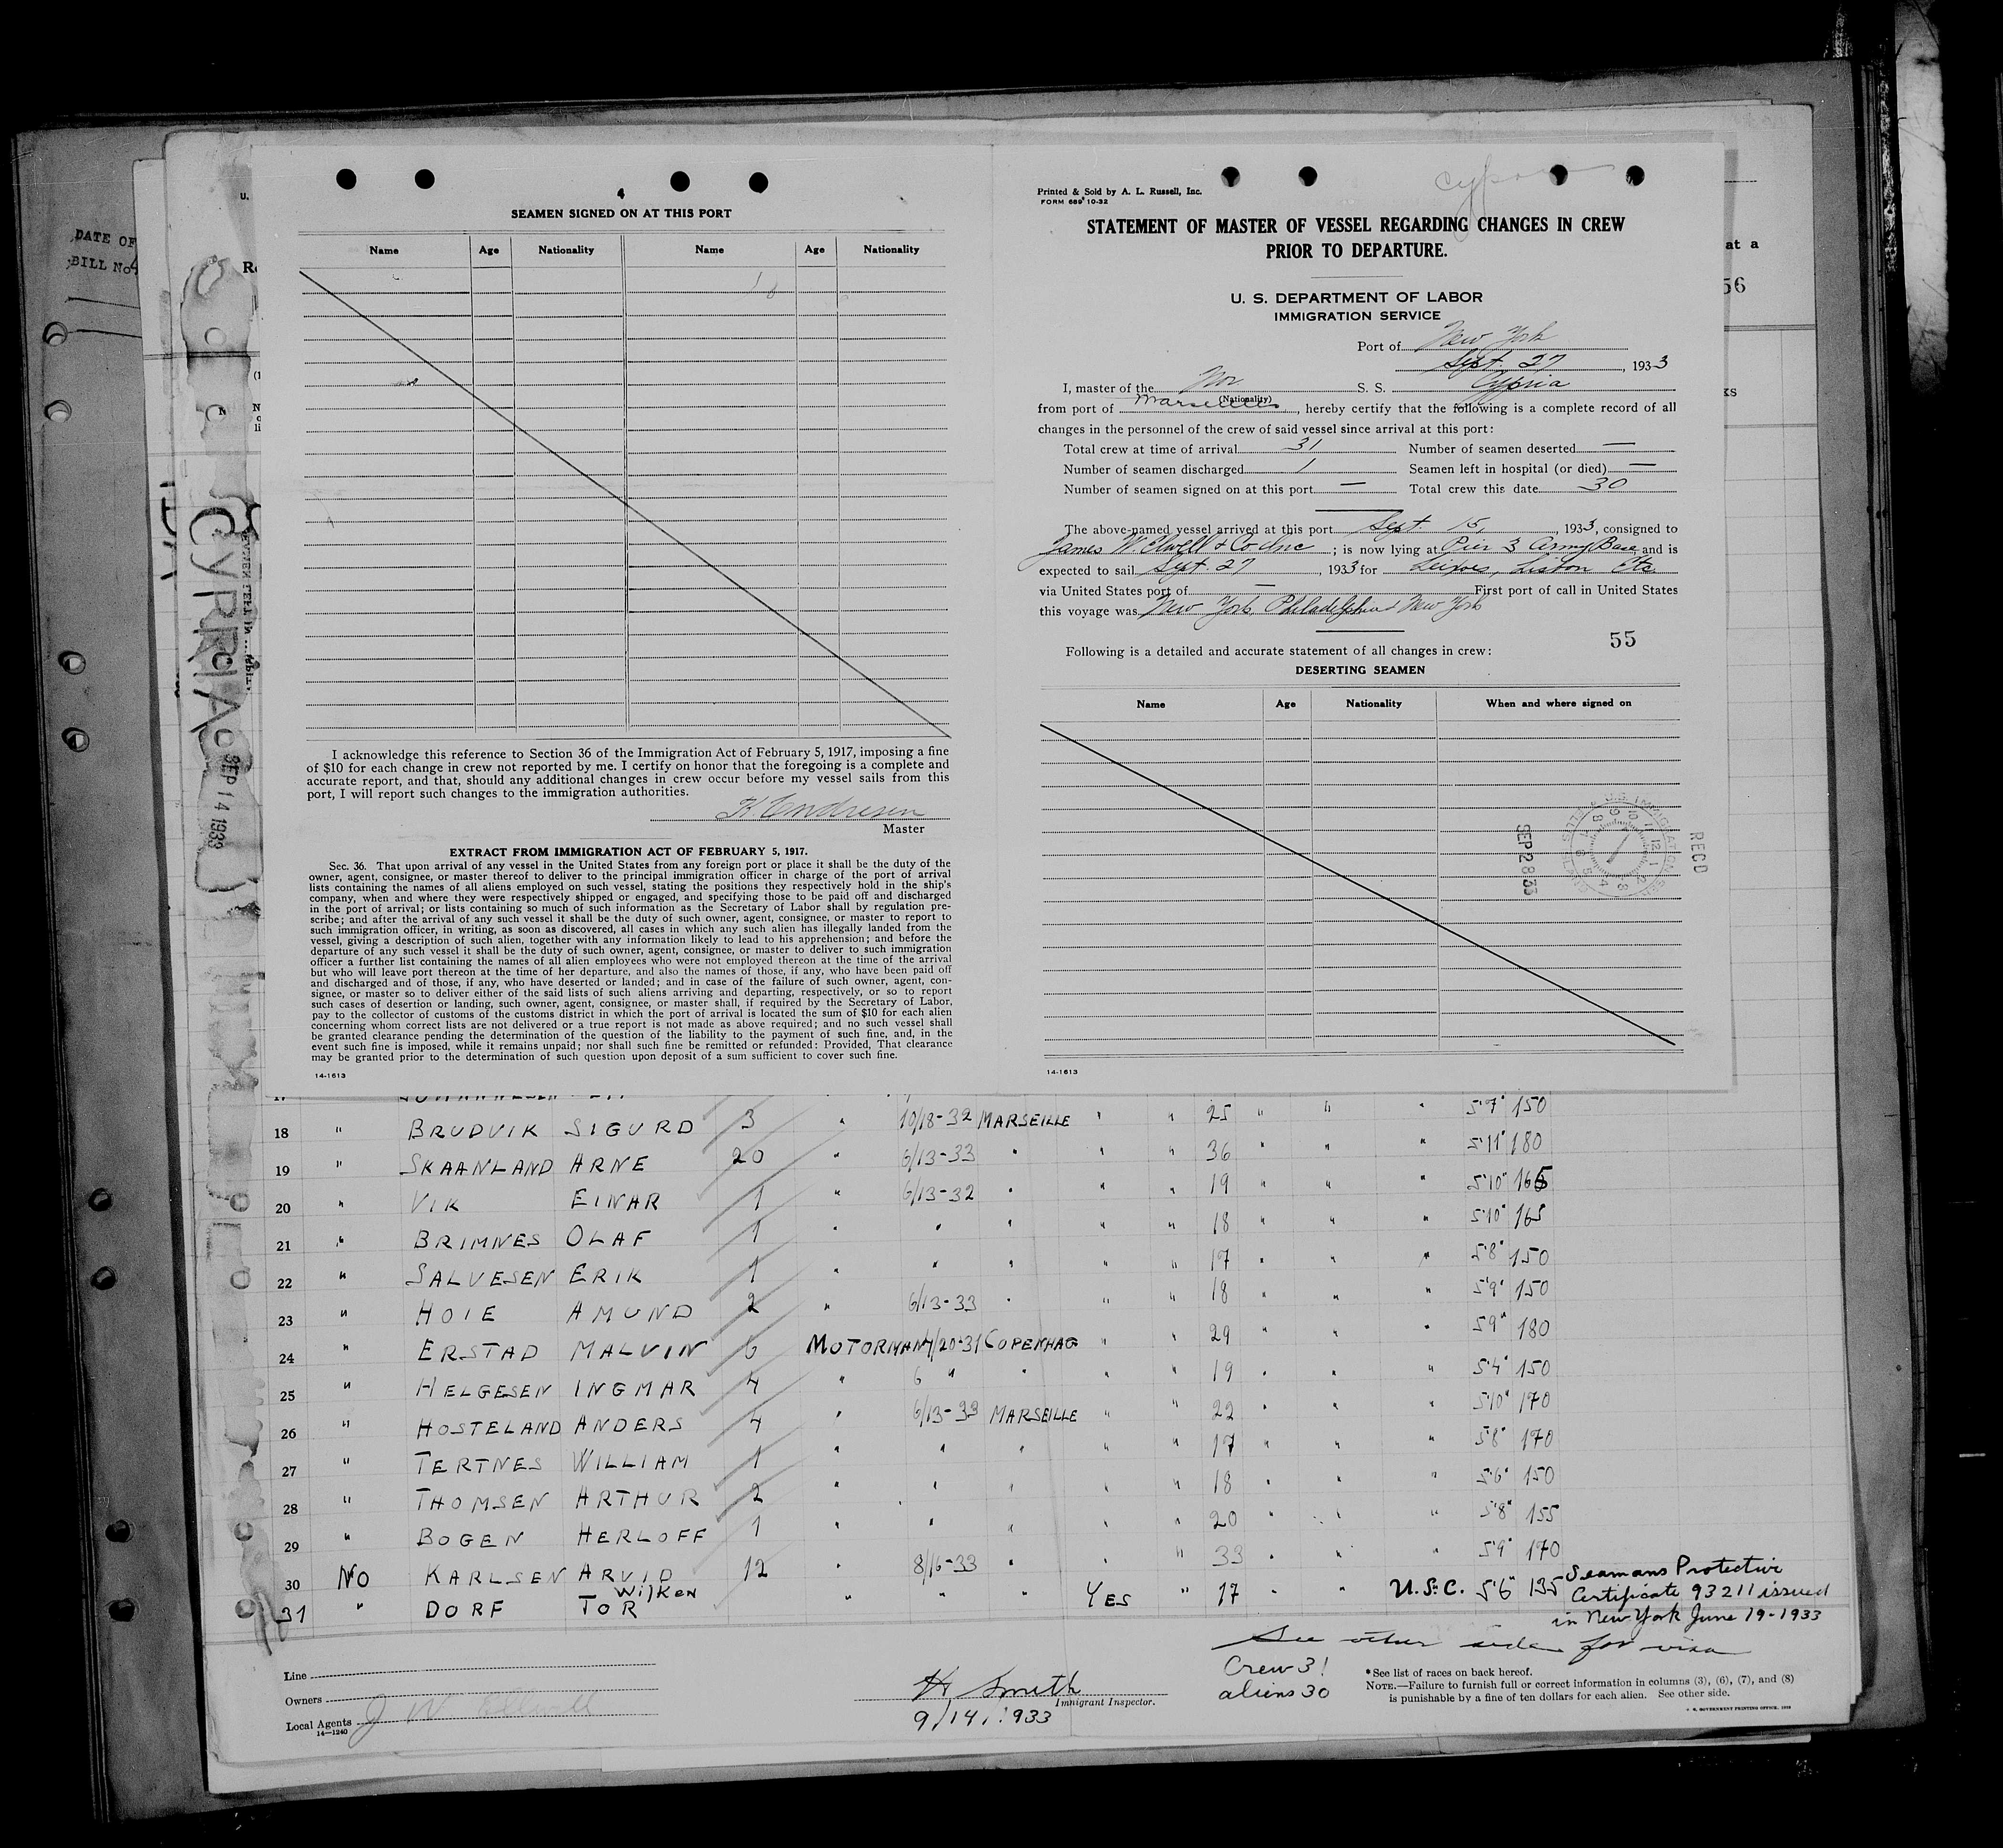 DATE OF
BILL No
SEAMEN SIGNED ON AT THIS PORT
Name Age Nationality Name Age Nationality
I acknowledge this reference to Section 36 of the Immigration Act of February 5, 1917, imposing a fine
of $10 for each change in crew not reported by me. I certify on honor that the foregoing is a complete and
accurate report, and that, should any additional changes in crew occur before my vessel sails from this
port, I will report such changes to the immigration authorities.
K Endresen
Master
EXTRACT FROM IMMIGRATION ACT OF FEBRUARY 5, 1917.
Sec. 36. That upon arrival of any vessel in the United States from any foreign port or place it shall be the duty of the
owner, agent, consignee, or master thereof to deliver to the principal immigration officer in charge of the port of arrival
lists containing the names of all aliens employed on such vessel, stating the positions they respectively hold in the ship's
company, when and where they were respectively shipped or engaged, and specifying those to be paid off and discharged
in the port of arrival; or lists containing so much of such information as the Secretary of Labor shall by regulation pre-
scribe; and after the arrival of any such vessel it shall be the duty of such owner, agent, consignee, or master to report to
such immigration officer, in writing, as soon as discovered, all cases in which any such alien has illegally landed from the
vessel, giving a description of such alien, together with any information likely to lead to his apprehension; and before the
departure of any such vessel it shall be the duty of such owner, agent, consignee, or master to deliver to such immigration
officer a further list containing the names of all alien employees who were not employed thereon at the time of the arrival
but who will leave port thereon at the time of her departure, and also the names of those, if any, who have been paid off
and discharged and of those, if any, who have deserted or landed; and in case of the failure of such owner, agent, con-
signee, or master so to deliver either of the said lists of such aliens arriving and departing, respectively, or so to report
such cases of desertion or landing, such owner, agent, consignee, or master shall, if required by the Secretary of Labor,
pay to the collector of customs of the customs district in which the port of arrival is located the sum of $10 for each alien
concerning whom correct lists are not delivered or a true report is not made as above required; and no such vessel shall
be granted clearance pending the determination of the question of the liability to the payment of such fine, and, in the
event such fine is imposed, while it remains unpaid; nor shall such fine be remitted or refunded: Provided, That clearance
may be granted prior to the determination of such question upon deposit of a sum sufficient to cover such fine.
14-1613
Cypria
Printed & Sold by A. L. Russell, Inc.
FORM 689 10-32
STATEMENT OF MASTER OF VESSEL REGARDING CHANGES IN CREW
PRIOR TO DEPARTURE.
U. S. DEPARTMENT OF LABOR
IMMIGRATION SERVICE
Port of New York
Sept. 27, 1933
I, master of the Nor S. S. Cypria
(Nationality)
from port of Marseilles, hereby certify that the following is a complete record of all
changes in the personnel of the crew of said vessel since arrival at this port:
Total crew at time of arrival 31 Number of seamen deserted —
Number of seamen discharged 1 Seamen left in hospital (or died) —
Number of seamen signed on at this port — Total crew this date 30
The above-named vessel arrived at this port Sept. 15, 1933, consigned to
James W Elwell & Co Inc; is now lying at Pier 3 Army Base and is
expected to sail Sept. 27, 1933 for Leixoes, Lisbon Etc.
via United States port of — First port of call in United States
this voyage was New York, Philadelphia & New York
55
Following is a detailed and accurate statement of all changes in crew:
DESERTING SEAMEN
Name Age Nationality When and where signed on
SEP 28 33
RECD
14-1613
at a
56
CYPRIA
SEP 14 1933
5'7" 150
18 " BRUDVIK SIGURD 3 " 10/18-32 MARSEILLE " " 25 " " " 5'11" 180
19 " SKAANLAND ARNE 20 " 6/13-33 " " " 36 " " " 5'10" 165
20 " VIK EINAR 1 " 6/13-32 " " " 19 " " " 5'10" 165
21 " BRIMNES OLAF 1 " " " " " 18 " " " 5'8" 150
22 " SALVESEN ERIK 1 " " " " " 17 " " " 5'9" 150
23 " HOIE AMUND 2 " 6/13-33 " " " 18 " " " 5'9" 180
24 " ERSTAD MALVIN 6 MOTORMAN 4/20-31 COPENHAG " " 29 " " " 5'4" 150
25 " HELGESEN INGMAR 4 " 6 " " " " 19 " " " 5'10" 170
26 " HOSTELAND ANDERS 4 " 6/13-33 MARSEILLE " " 22 " " " 5'8" 170
27 " TERTNES WILLIAM 1 " " " " " 17 " " " 5'6" 150
28 " THOMSEN ARTHUR 2 " " " " " 18 " " " 5'8" 155
29 " BOGEN HERLOFF 1 " " " " " 20 " " " 5'9" 170
30 NO KARLSEN ARVID 12 " 8/16-33 " " " 33 " "
31 " DORF TOR Wilken " " " YES " 17 " " U.S.C. 5'6" 135 Seamans Protective
Certificate 93211 issued
in New York June 19-1933
See other side for visa
Line
Owners
Local Agents J W Elwell
14—1240
H. Smith
Immigrant Inspector.
9/14/1933
Crew 31
aliens 30
*See list of races on back hereof.
NOTE.—Failure to furnish full or correct information in columns (3), (6), (7), and (8)
is punishable by a fine of ten dollars for each alien. See other side.
U. S. GOVERNMENT PRINTING OFFICE